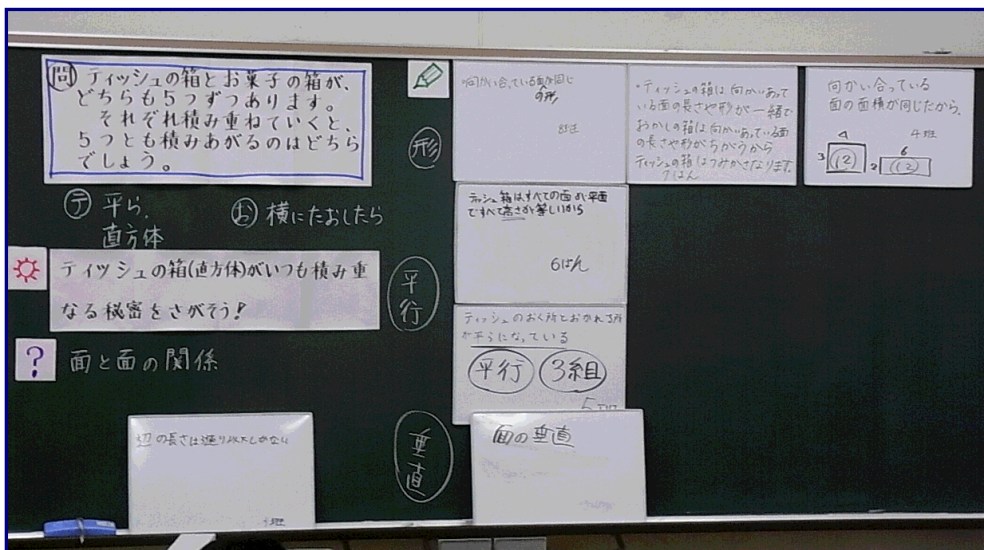 問 ティッシュの箱とお菓子の箱が、
どちらも5つずつあります。
それぞれ積み重ねていくと、
5つとも積みあがるのはどちら
でしょう。
テ 平ら、
直方体
お 横にたおしたら
ティッシュの箱(直方体)がいつも積み重
なる秘密をさがそう!
? 面と面の関係
辺の長さは
形
向かい合っている面が同じ
の形
8班
・ティッシュの箱は向かいあって
いる面の長さや形が一緒で
おかしの箱は向かいあっている面
の長さや形がちがうから
ティッシュの箱はつみかさなります。
向かい合っている
面の面積が同じだから。
4班
3 4 (12) 2 6 (12)
平行
ティッシュ箱はすべての面が平面
ですべて高さが等しいから
6ぱん
ティッシュのおく所とおかれる所
が平らになっている
平行 3組
垂直
面の垂直